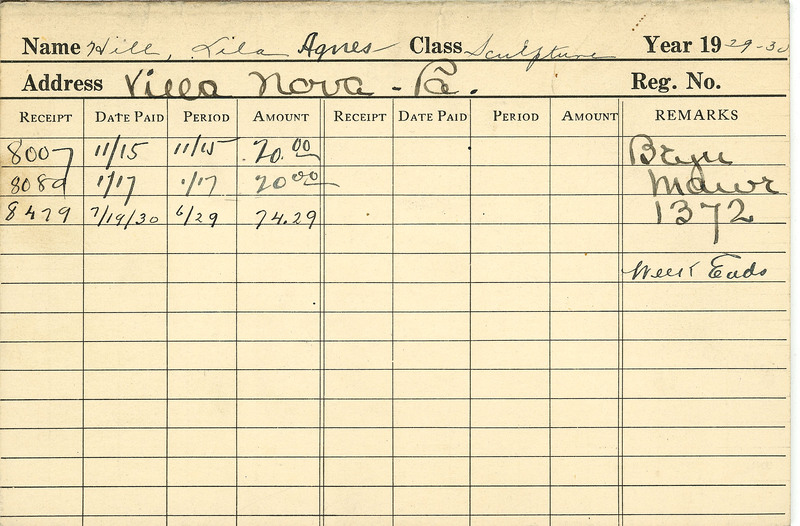 Name Hill, Lila Agnes Class Sculpture Year 1929-30
Address Villa Nova - Pa. Reg. No.
RECEIPT DATE PAID PERIOD AMOUNT RECEIPT DATE PAID PERIOD AMOUNT REMARKS
8007 11/15 11/15 20.00 Bryn
1/17 1/17 20.00 Mawr
8479 7/19/30 6/29 74.29 1372
Week Ends